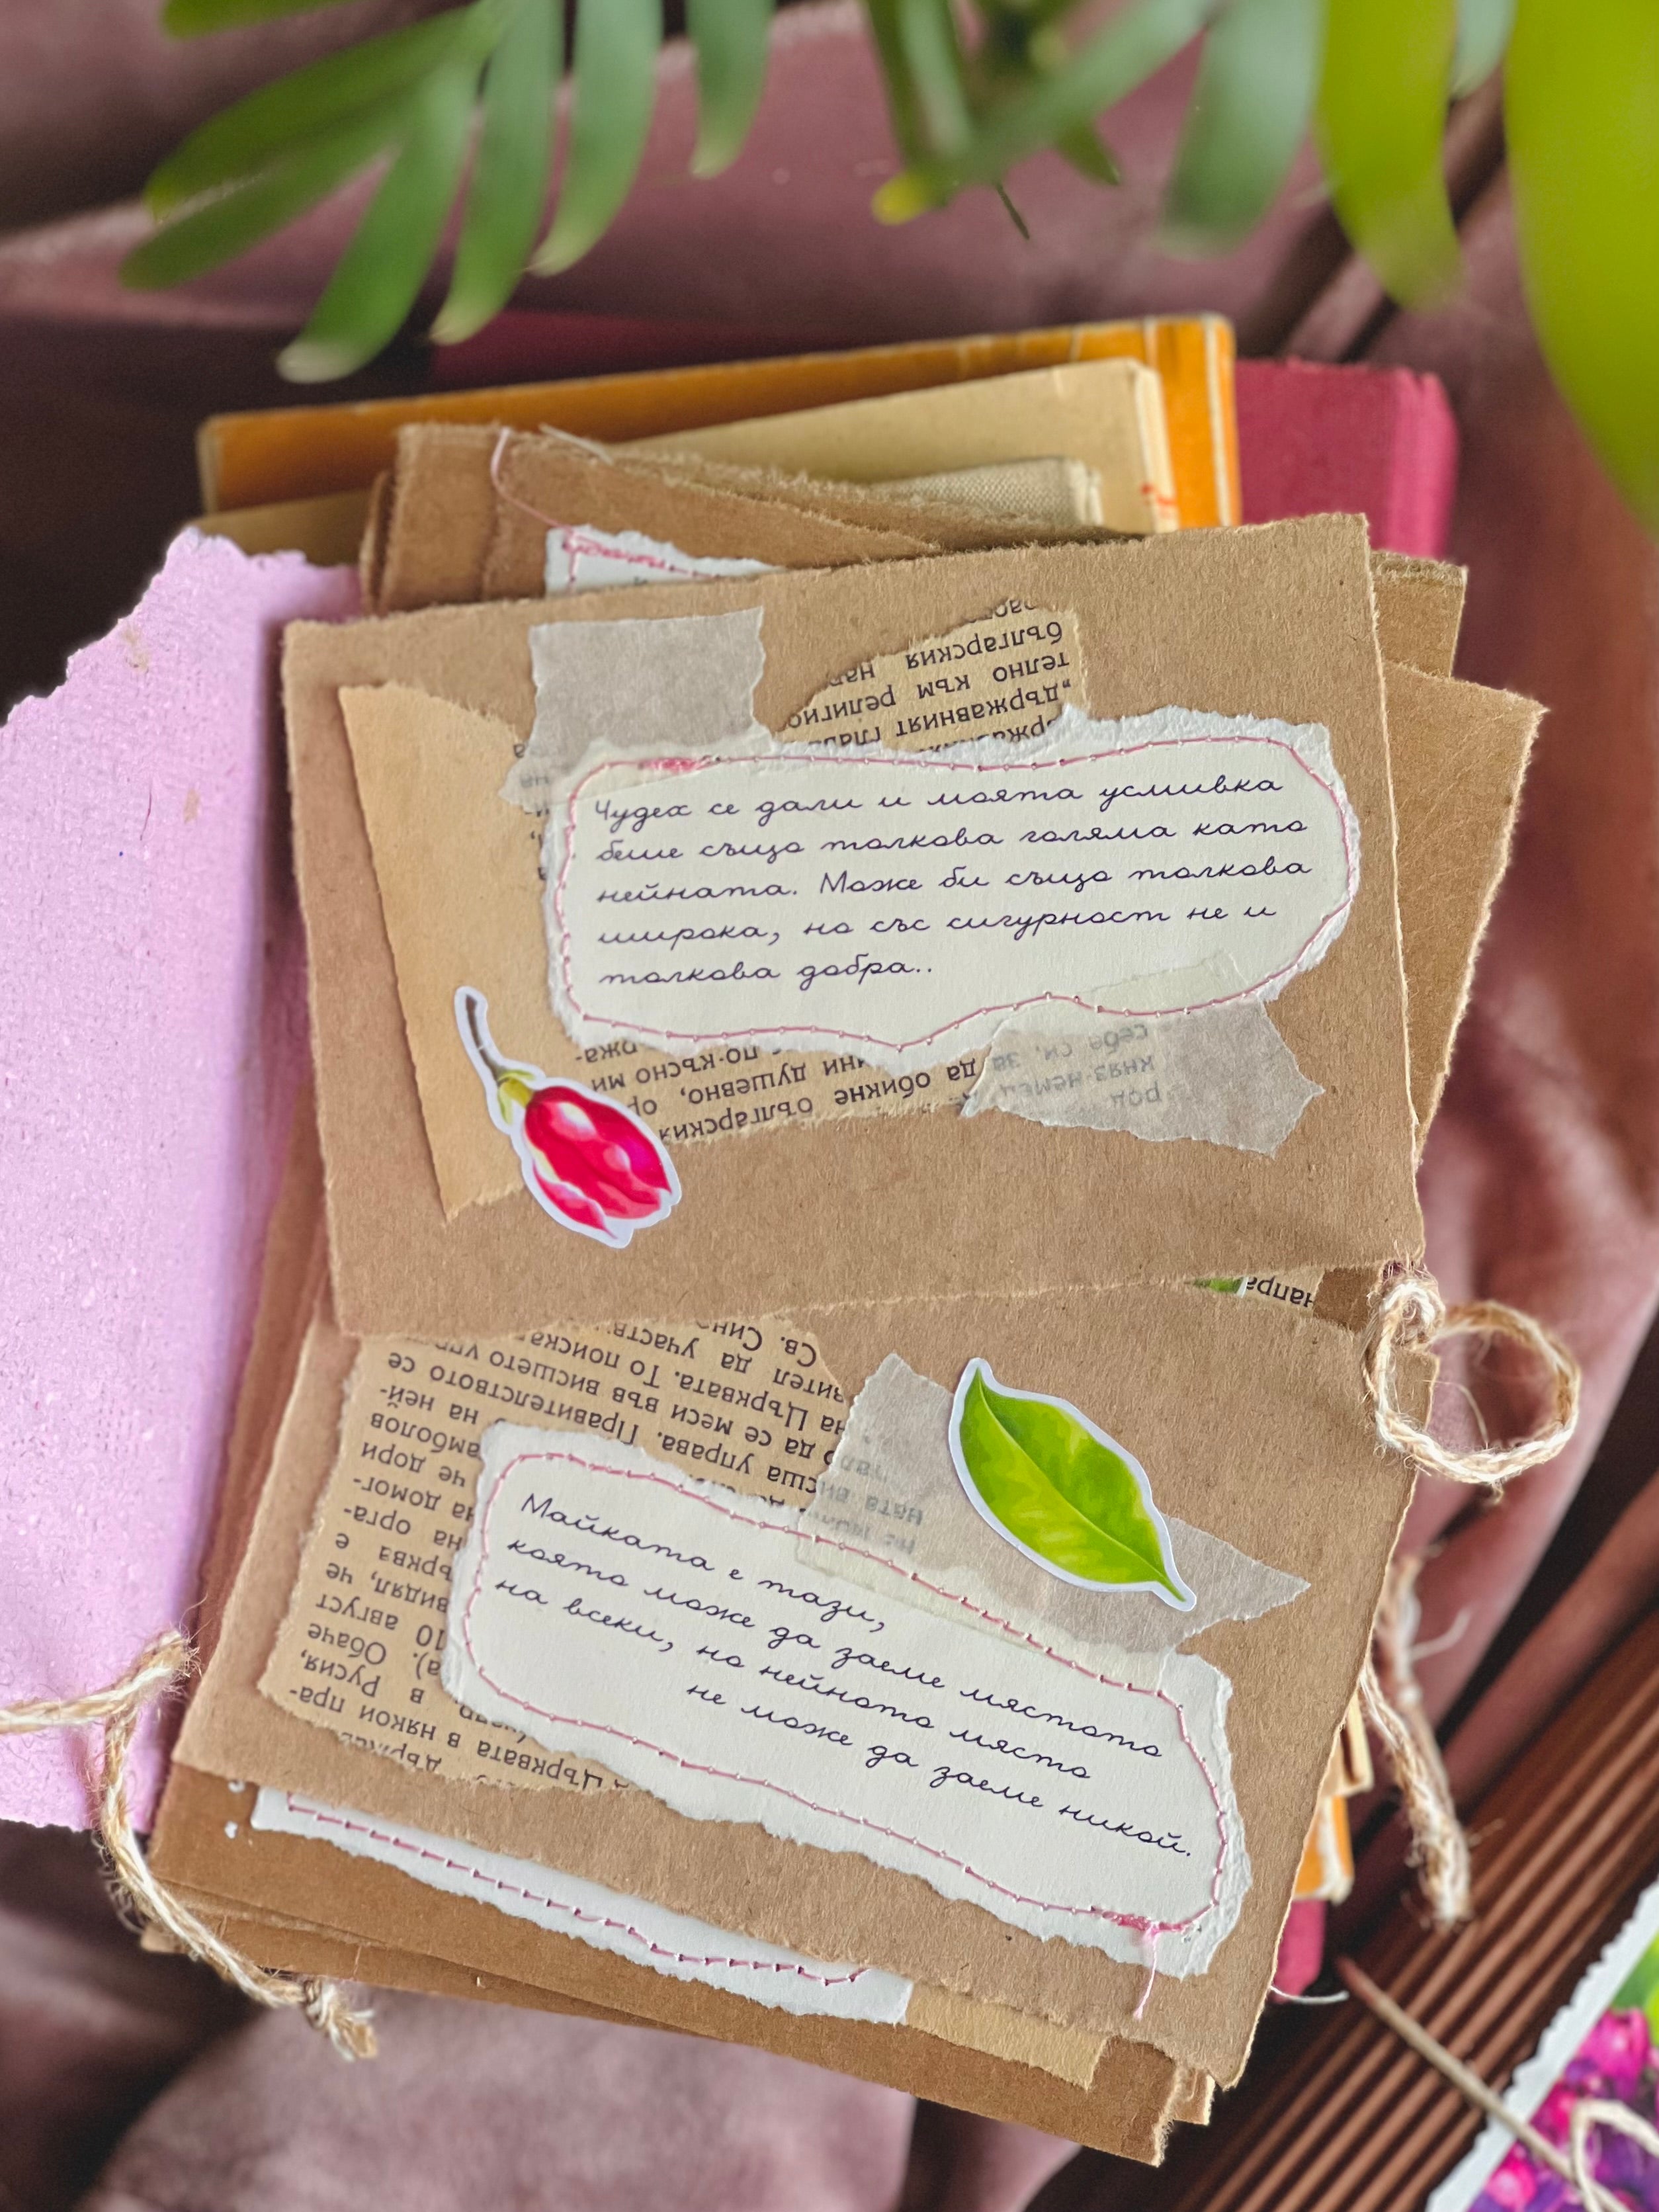 Чудех се дали и моята усмивка
беше също толкова голяма като
нейната. Може би също толкова
широка, но със сигурност не и
толкова добра..
Майката е тази,
която може да заеме мястото
на всеки, но нейното място
не може да заеме никой.
български
телно към религио
"държавният глав
българския
да обикне
душевно,
по-късно ми
себе си, за
княз-немец
род
напра
Св. Син
вител да участв
на Църквата. То поиска
да се меси във висшето упр
сша управа. Правителството се
на ней-
амболов
че дори
на домог-
на орга-
е
видял, че
10 август
а). Обаче
в Русия,
Църквата в някои пра-